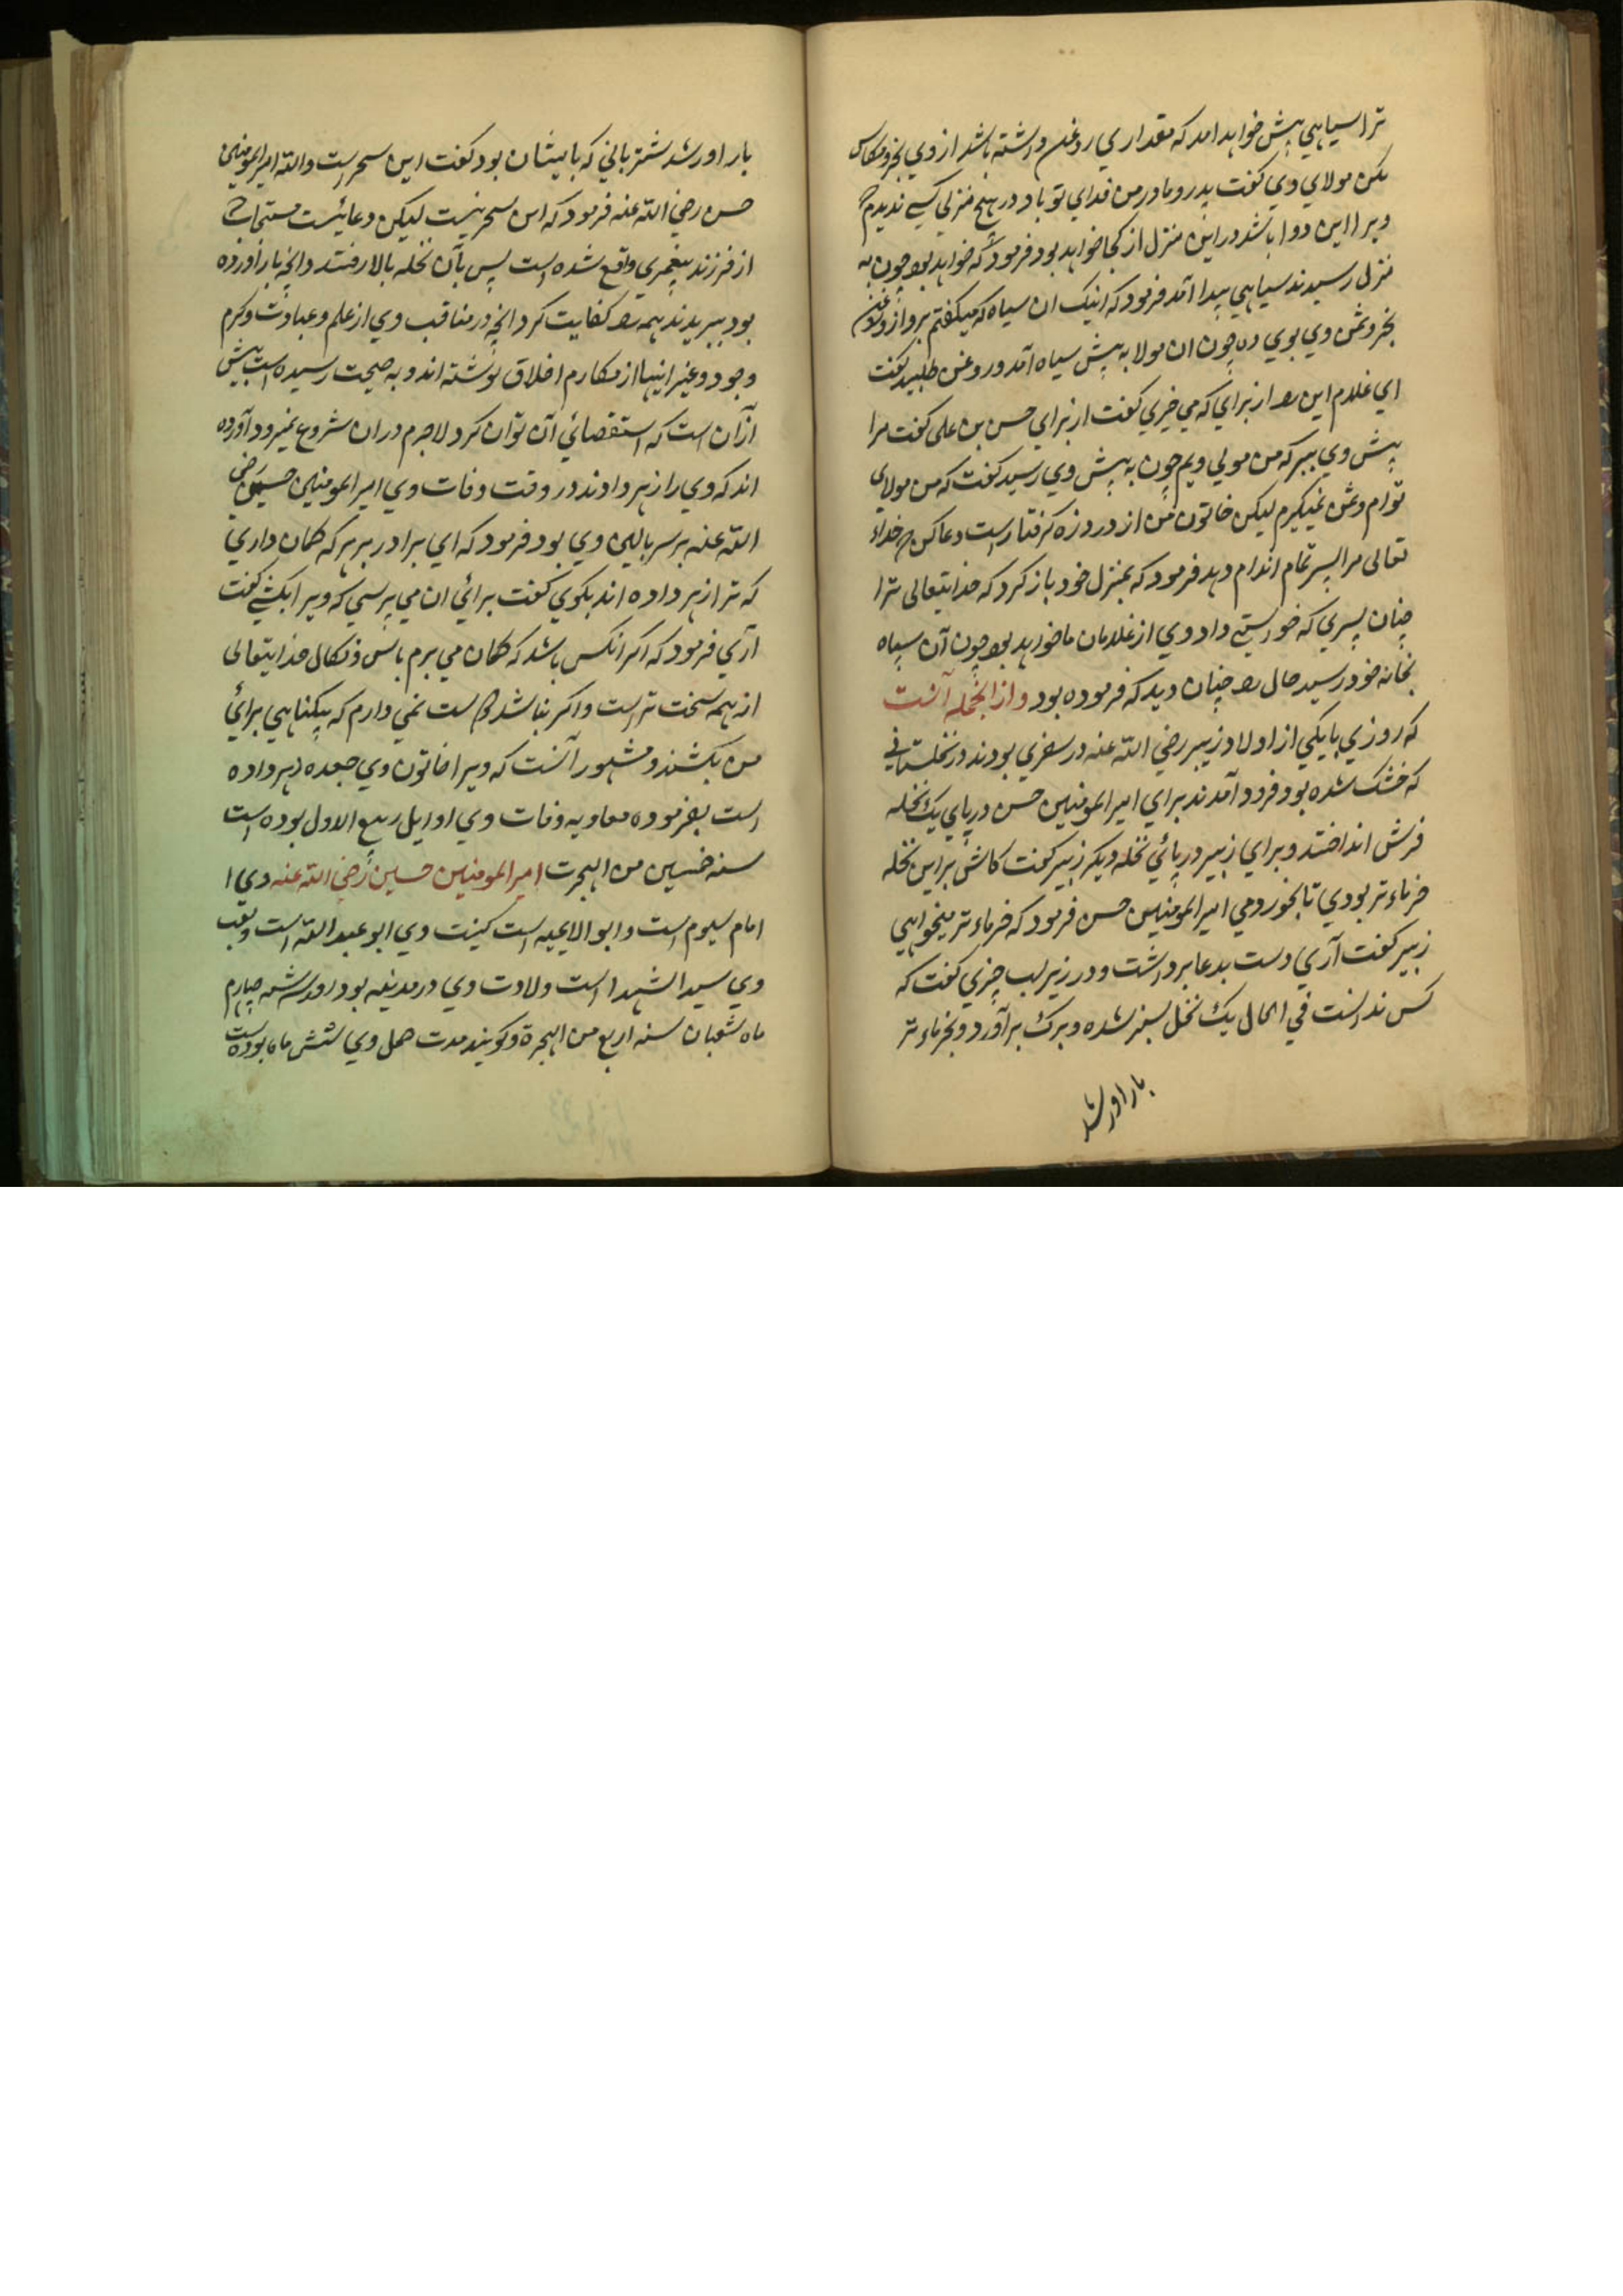 ترا سیاهي پیش خواهد امد که مقداري روغن داشته باشد از وي بخر ومکاس
مکن مولاي وي گفت پدر و مادر من فداي تو باد در هیچ منزلي کسي ندیدم که
ویرا این دوا باشد در این منزل از کجا خواهد بود فرمود که خواهد بود چون به
منزل رسیدند سیاهي پیدا آمد فرمود که اینک ان سیاه که میگفتم برو از وي روغن
بخر وثمن وي بوي ده چون ان مولا به پیش سیاه آمد و روغن طلبید گفت
اي غلام این را از براي که مي خري گفت از براي حسن بن علی گفت مرا
پیش وي ببر که من مولي ویم چون به پیش وي رسید گفت که من مولای
توام وثمن نمیگیرم لیکن خاتون من از درد زه گرفتار است دعا کن که خداء
تعالی مرا پسر تمام اندام دهد فرمود که بمنزل خود باز گرد که خدایتعالی ترا
چنان پسري که خواستي داد و وي از غلامان ما خواهد بود چون آن سیاه
بخانه خود رسید حال را چنان دید که فرموده بود و از انجمله آنست
که روزي با یکي از اولاد زبیر رضي الله عنه در سفري بودند در نخلستاني
که خشک شده بود فرود آمدند براي امیر المومنین حسن در پاي یک نخله
فرش انداختند و براي زبیر در پائي نخله دیگر زبیر گفت کاش بر این نخله
خرماء تر بودي تا بخوردمي امیر المومنین حسن فرمود که خرماء تر میخواهي
زبیر گفت آري دست بدعا برداشت و در زیر لب چیزي گفت که
کس ندانست في الحال یک نخل سبز شده و برک برآورد و بخرماء تر
بار اور شد
بار اور شد شتر باني که با ایشان بود گفت این سحر است والله امیر المومنین
حسن رضي الله عنه فرمود که این سحر نیست لیکن دعائیست مستجاب که
از فرزند پیغمبري واقع شده است پس بآن نخله بالا رفتند و انچه بار آورده
بود ببریدند همه را کفایت کرد انچه در مناقب وي از علم و عبادت و کرم
وجود و غیر اینها از مکارم اخلاق نوشته اند و به صحت رسیده است بیش
از آن است که استقصائي آن توان کرد لاجرم در ان شروع نمیرود آورده
اند که وي را زهر دادند در وقت وفات وي امیر المومنین حسین رضي
الله عنه بر سر بالین وي بود فرمود که اي برادر بر هر که گمان داري
که ترا زهر داده اند بگوي گفت برائي ان مي پرسي که ویرا بکشي گفت
آري فرمود که اگر انکس باشد که گمان مي برم باس و نکال خدایتعالی
از همه سخت تر است و اگر نباشد دوست نمي دارم که بیگناهي برائي
من بکشند و مشهور آنست که ویرا خاتون وي جعده زهر داده
است بفرموده معاویه وفات وي اوایل ربیع الاول بوده است
سنه خمسین من الهجرت امیر المومنین حسین رضي الله عنه وي ا
امام سیوم است و ابو الایمه است کنیت وي ابو عبد الله است ولقب
وي سید الشهدا است ولادت وي در مدینه بود روز سه شنبه چهارم
ماه شعبان سنه اربع من الهجرة و گویند مدت حمل وي شش ماه بوده است